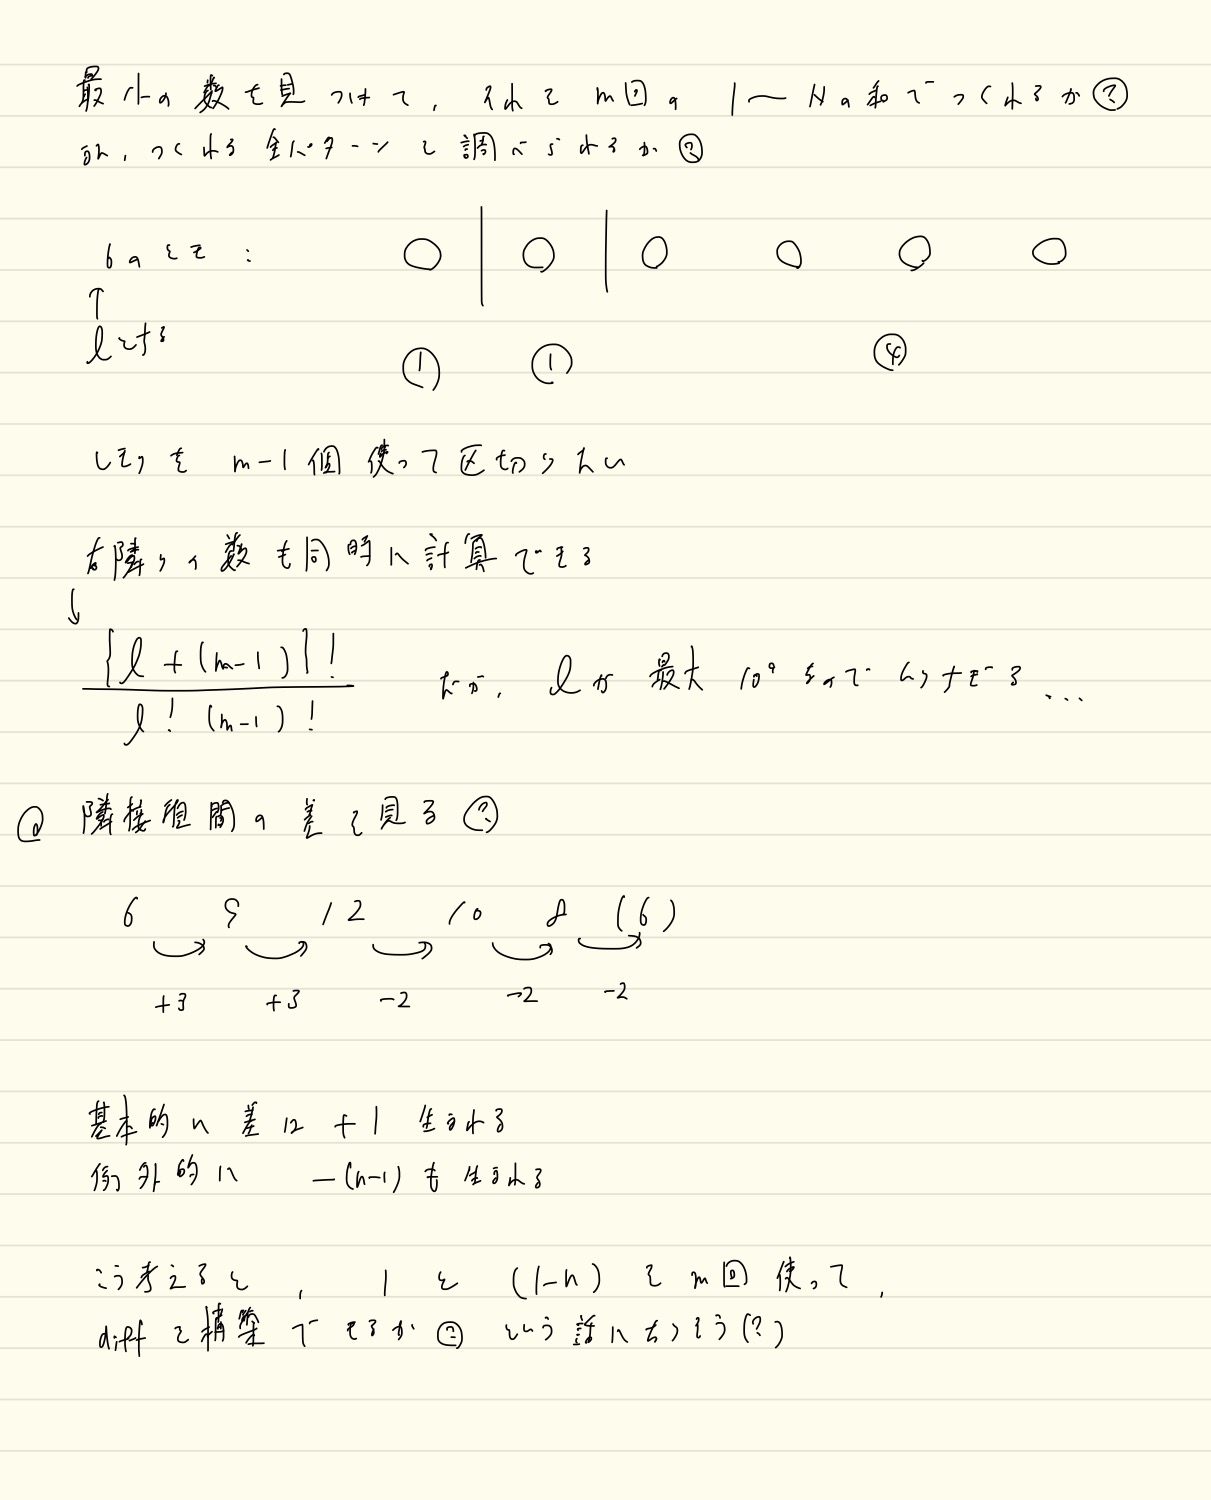 最小の数を見つけて、それを m回の 1〜Nの和でつくれるか?
又、つくれる全パターンを調べられるか?
6のとき : ○ | ○ | ○ ○ ○ ○
↑
lとする ① ① ④
しきりを m-1個 使って区切りたい
右隣りの数も同時に計算できる
↓
{l + (m-1)}! / l! (m-1)! だが、lが 最大 10⁹ なのでムリすぎる...
@ 隣接項間の差を見る?
6 9 12 10 8 (6)
+3 +3 -2 -2 -2
基本的に 差は +1 生まれる
例外的に -(n-1) も 生まれる
こう考えると、1 と (1-n) を m回 使って、
diff を構築できるか? という話になりそう(?)